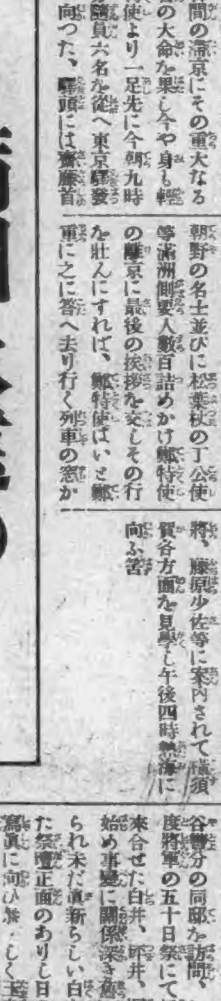 間の滞京にその重大なる
の大命を果し今や身も輕
使より一足先に今朝九時
隨員六名を從へ東京驛發
向つた、驛頭には齋藤首
朝野の名士並びに松葉杖の丁公使
等滿洲側要人數百詰めかけ鄭特使
の離京に最後の挨拶を交しその行
を壯んにすれば、鄭特使はいと鄭
重に之に答へ去り行く列車の窓か
將、藤原少佐等に案内されて橫須
賀各方面を見學し午後四時熱海に
向ふ筈
谷警分の同邸を訪問、
度將軍の五十日祭にて
來合せた白井、坪井、
始め事變に關係深き
られ未だ眞新らしい白
た祭壇正面のありし日
寫眞に向ひ しく玉